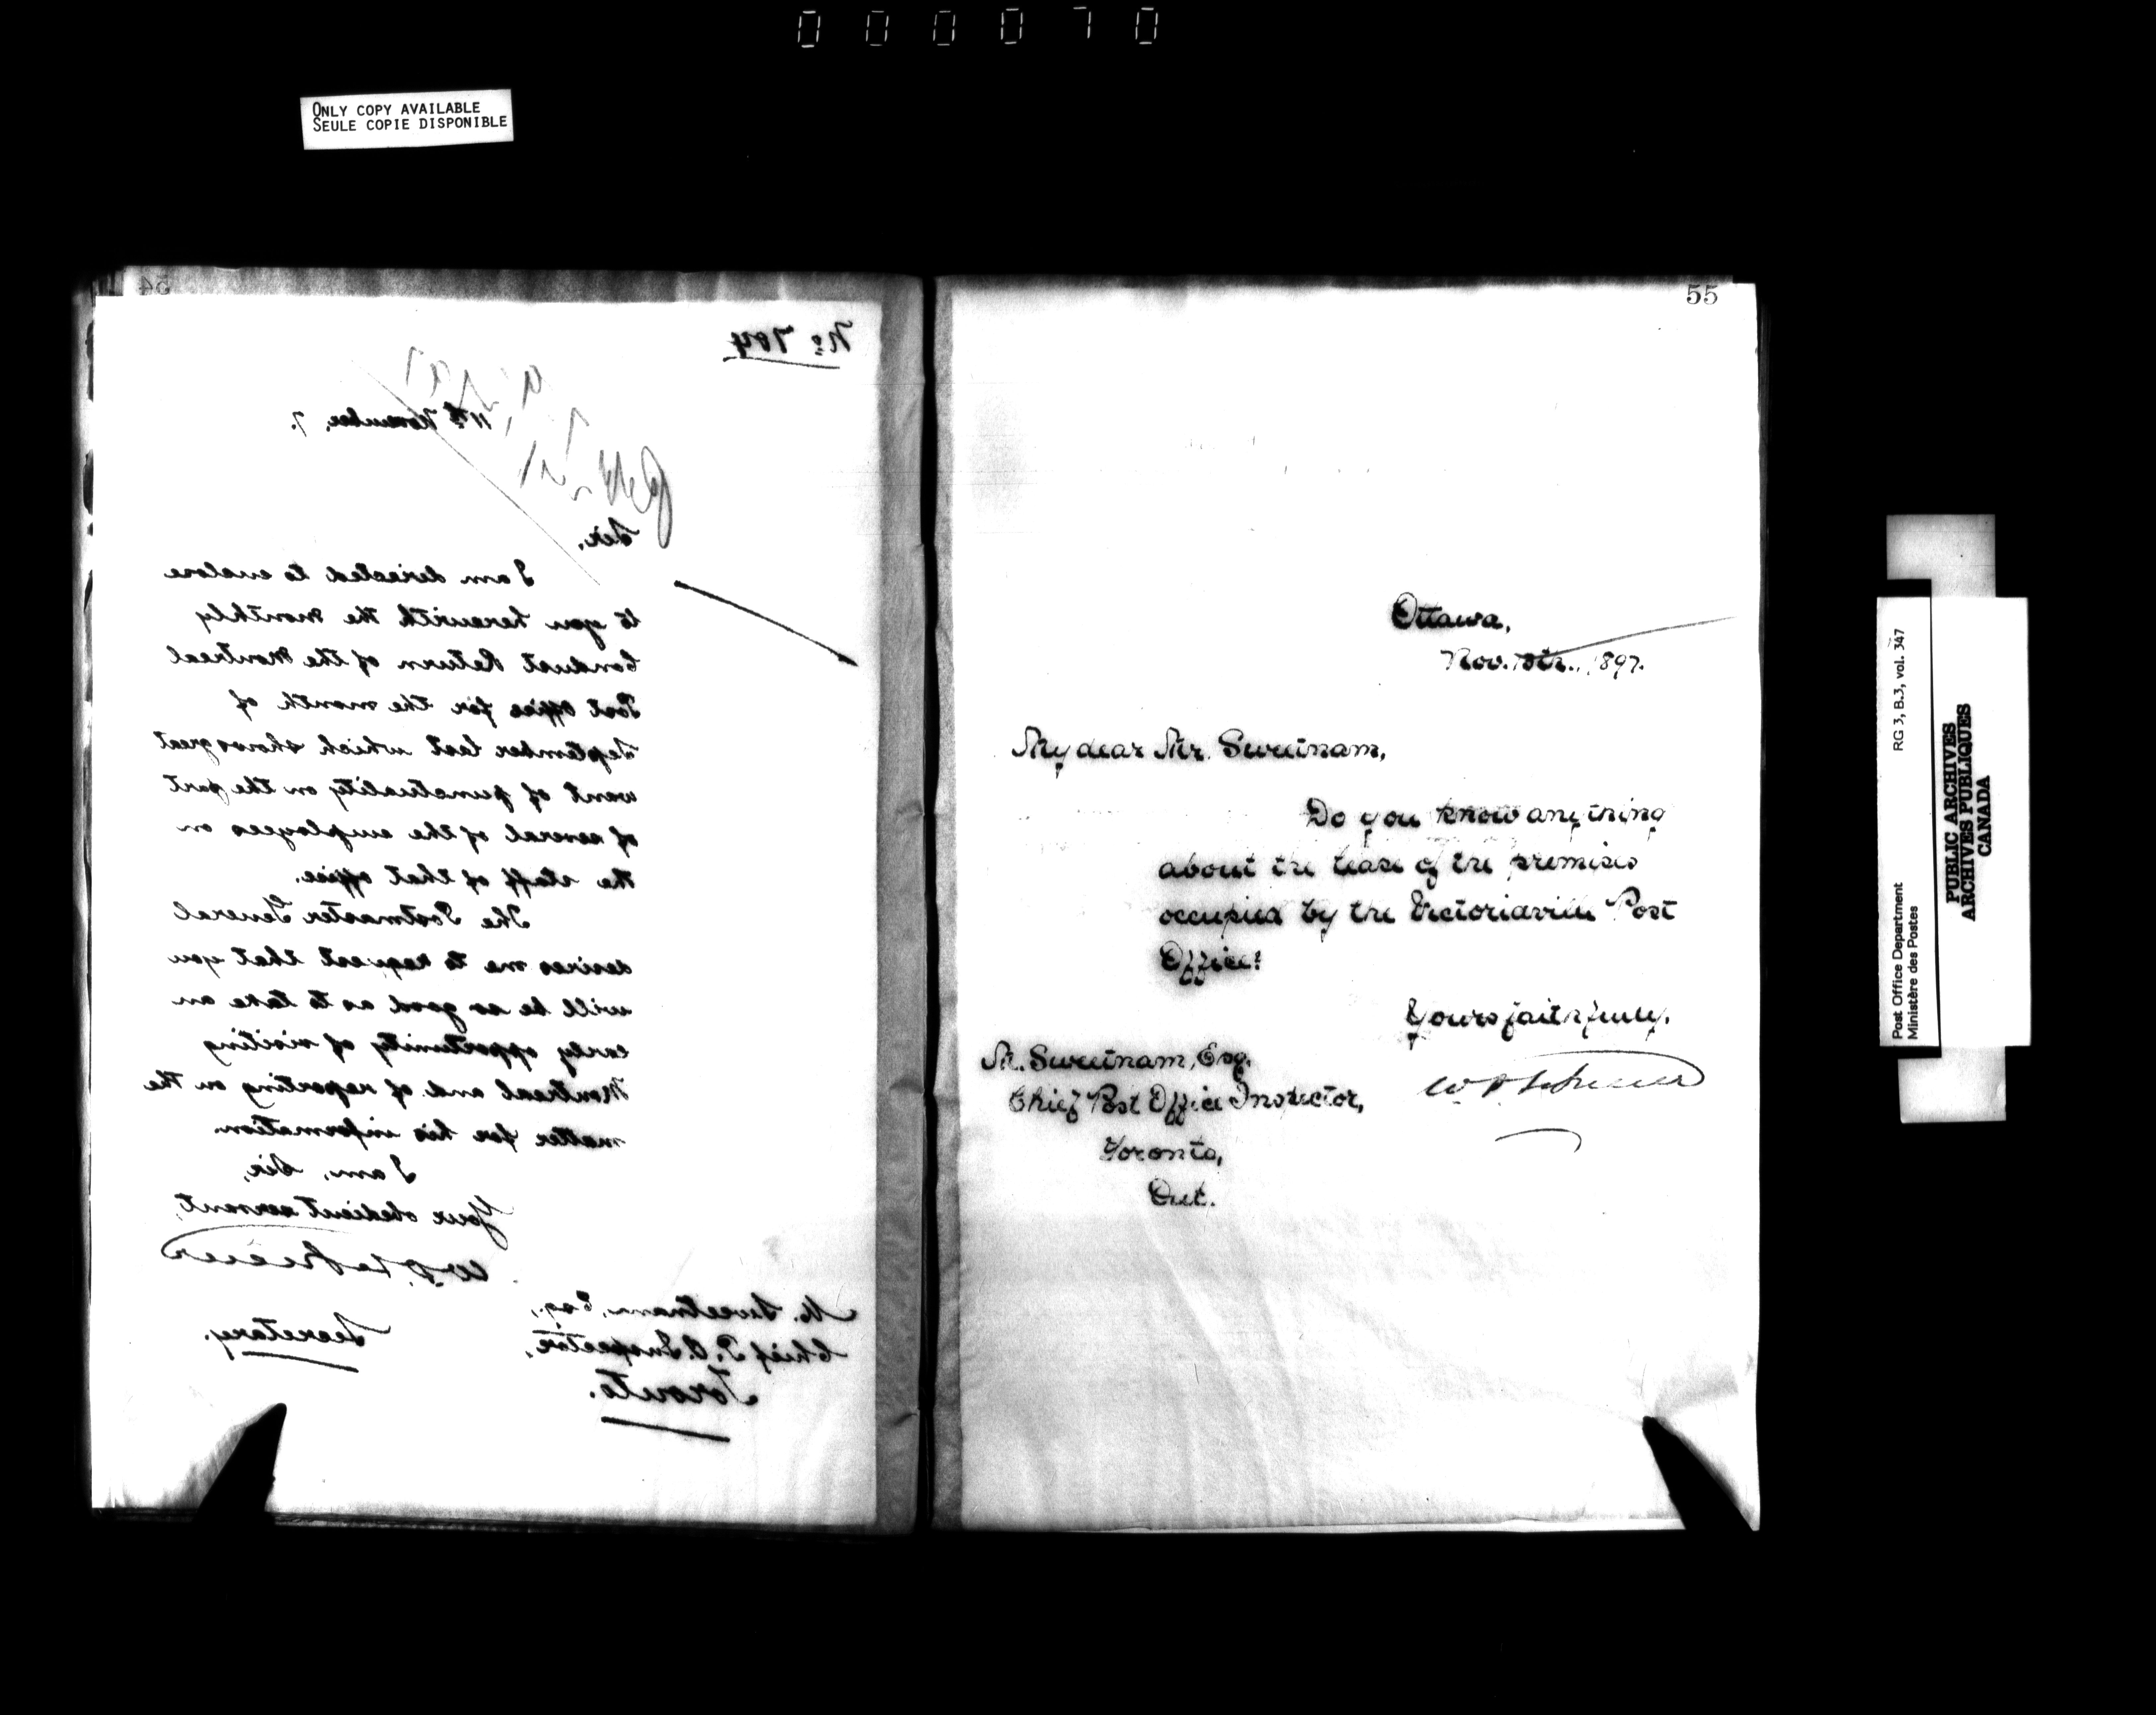 000070
ONLY COPY AVAILABLE
SEULE COPIE DISPONIBLE
54
No. 704
11th November, 7.
Sir,
I am directed to enclose
to you herewith the monthly
Conduct Return of the Montreal
Post Office for the month of
September last which shows great
want of punctuality on the part
of several of the employees on
the staff of that office.
The Postmaster General
desires me to request that you
will be so good as to take an
early opportunity of visiting
Montreal and of reporting on the
matter for his information.
I am, Sir,
Your obedient servant,
Secretary.
M. Sweetnam, Esq.,
Chief P.O. Inspector,
Toronto.
55
Ottawa,
Nov. 1897.
My dear Mr. Sweetnam,
Do you know anything
about the lease of the premises
occupied by the Victoriaville Post
Office?
Yours faithfully,
M. Sweetnam, Esq.
Chief Post Office Inspector,
Toronto,
Ont.
Post Office Department RG 3, B.3, vol. 347
Ministère des Postes
PUBLIC ARCHIVES
ARCHIVES PUBLIQUES
CANADA